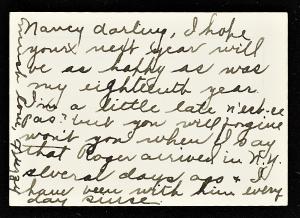 Nancy darling, I hope
your next year will
be as happy as was
my eighteenth year.
I'm a little late n'est-ce
pas? but you will forgive
won't you when I say
that Roger arrived in N.Y.
several days ago & I
have been with him every
day since.